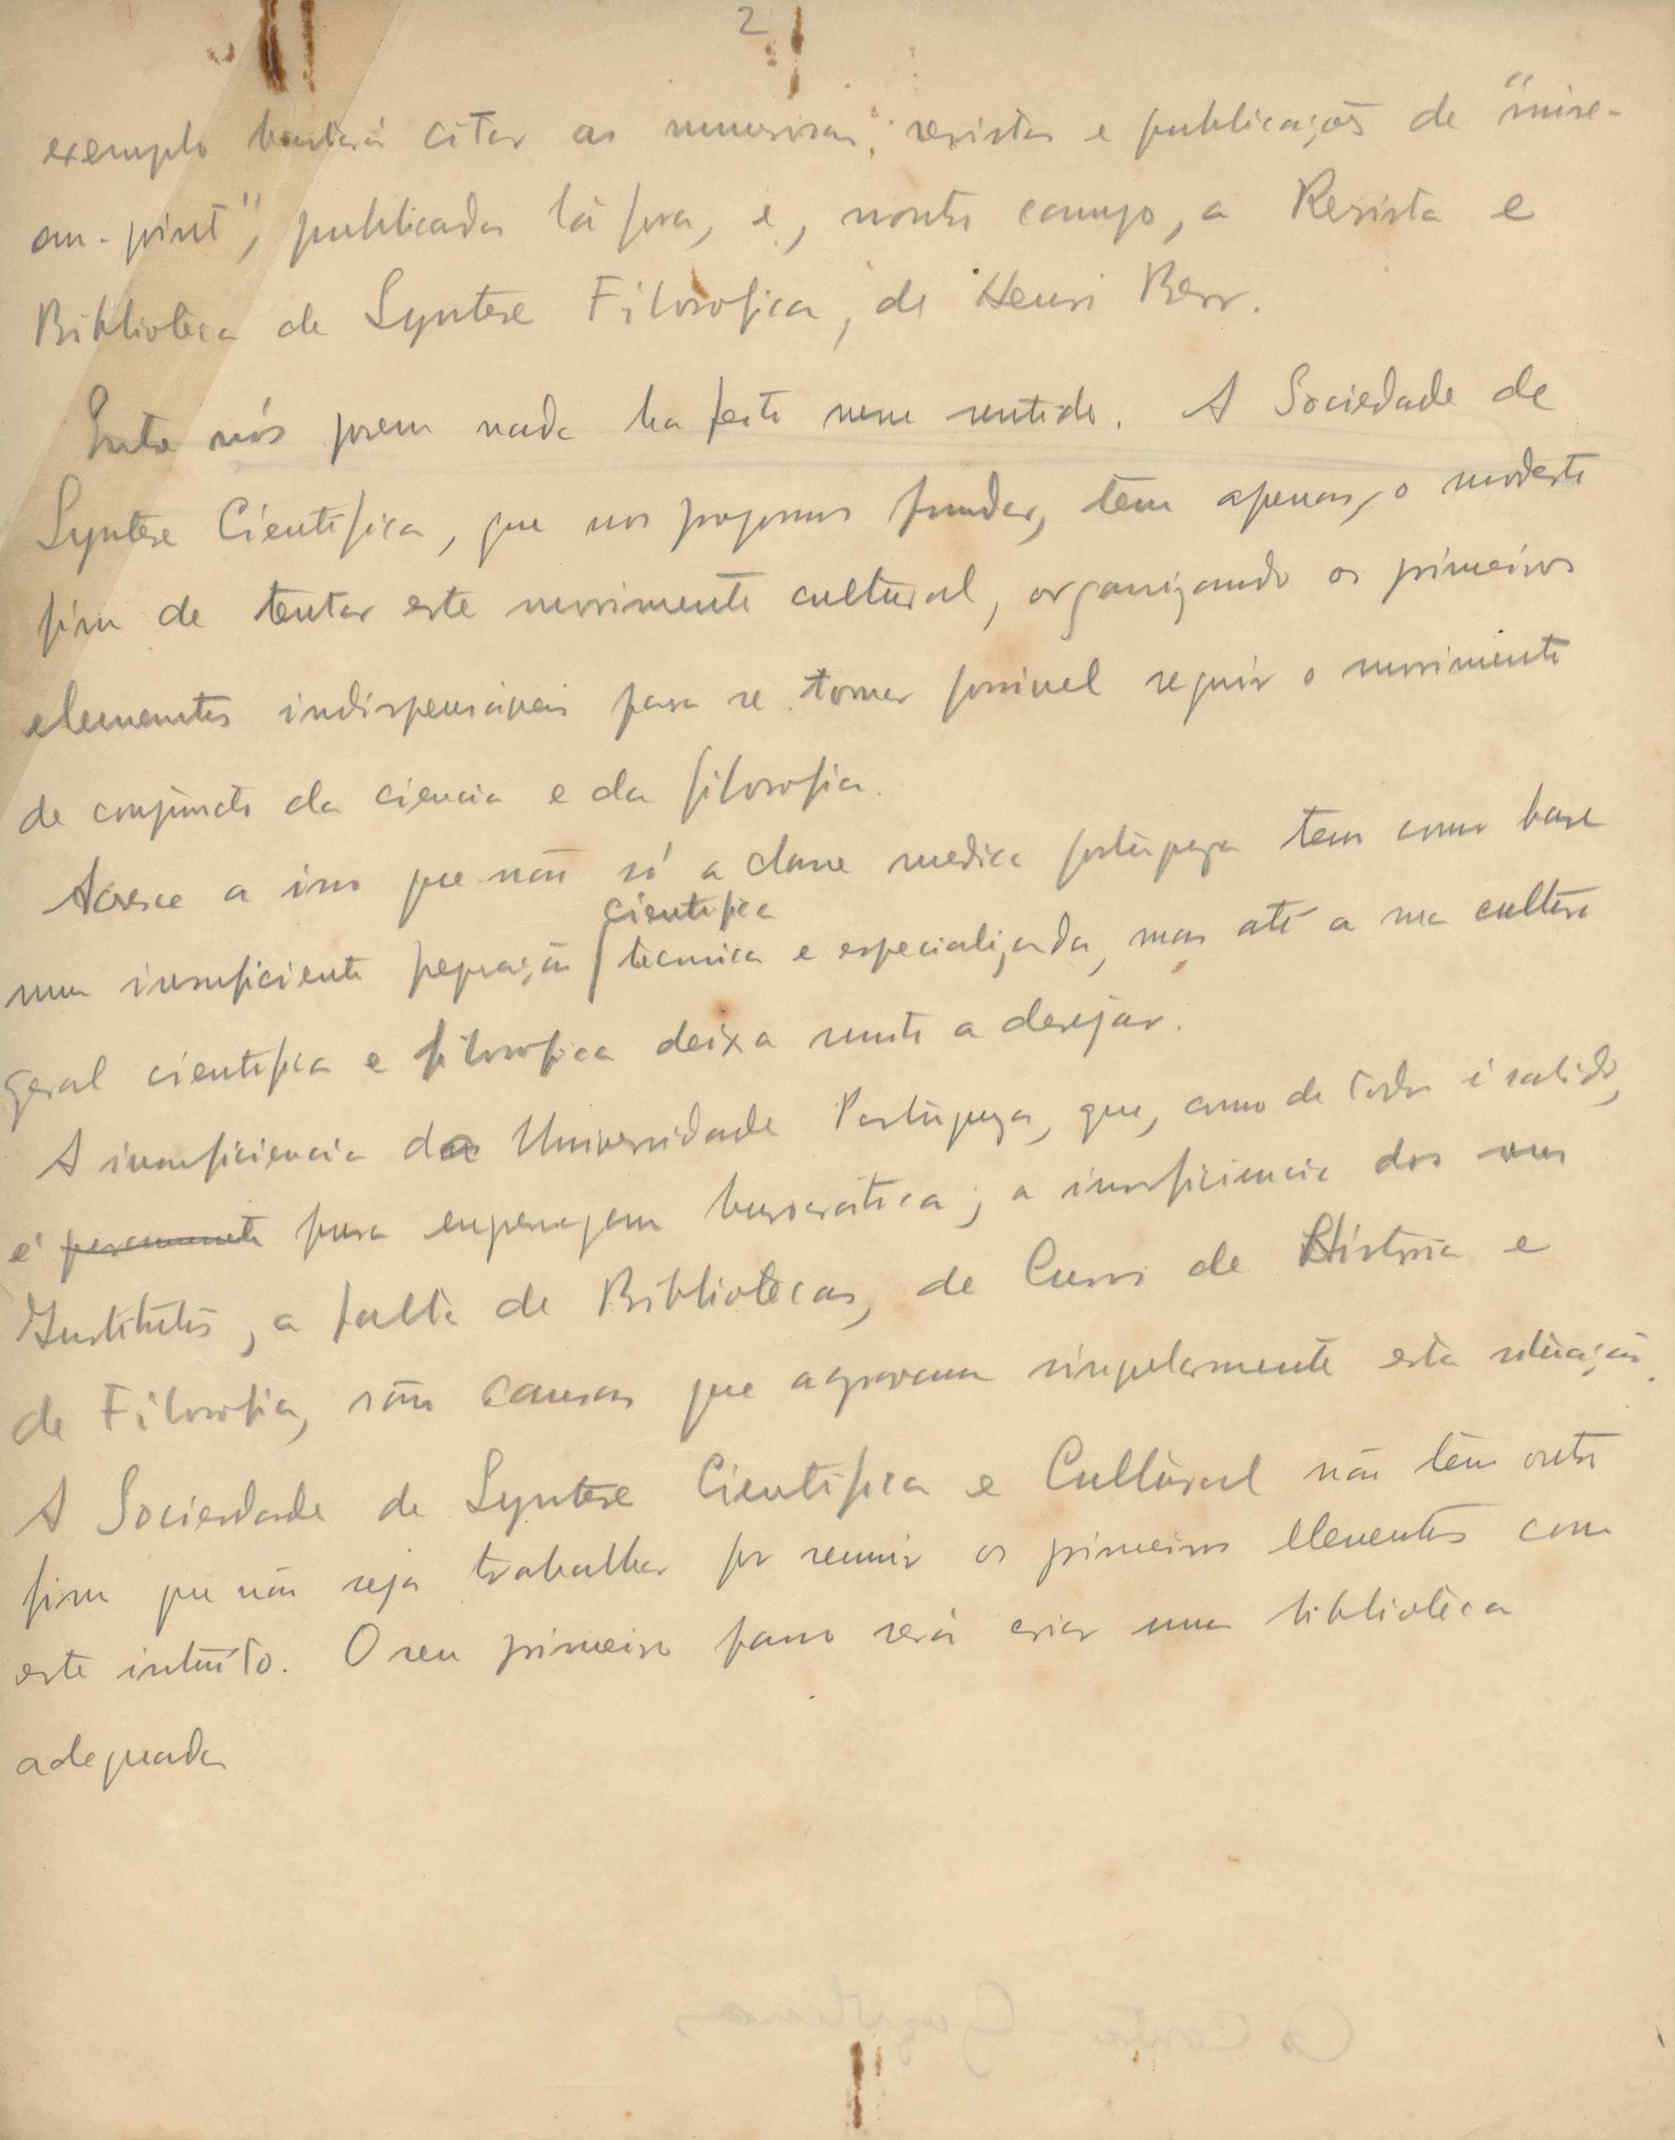 2
exemplo bastará citar as numerosas revistas e publicações de "mise-
au-point", publicadas lá fora, e, noutro campo, a Revista e
Biblioteca de Syntese Filosofica, de Henri Berr.
Entre nós porem nada ha feito nesse sentido. A Sociedade de
Syntese Cientifica, que nos propomos fundar, tem apenas, o modesto
fim de tentar este movimento cultural, organizando os primeiros
elementos indispensáveis para se tornar possivel seguir o movimento
de conjuncto da ciencia e da filosofia.
Acresce a isso que não só a classe medica portugueza tem como base
cientifica
uma insuficiente preparação tecnica e especializada, mas até a sua cultura
geral cientifica e filosofica deixa muito a desejar.
A insuficiencia da Universidade Portugueza, que, como de todos é sabido,
é puramente pura engrenagem burocrática; a insuficiencia dos seus
Institutos, a falta de Bibliotecas, de Cursos de Historia e
de Filosofia, são causas que agravam singularmente esta situação.
A Sociedade de Syntese Cientifica e Cultural não têm outro
fim que não seja trabalhar por reunir os primeiros elementos com
este intuíto. O seu primeiro passo será criar uma biblioteca
adequada